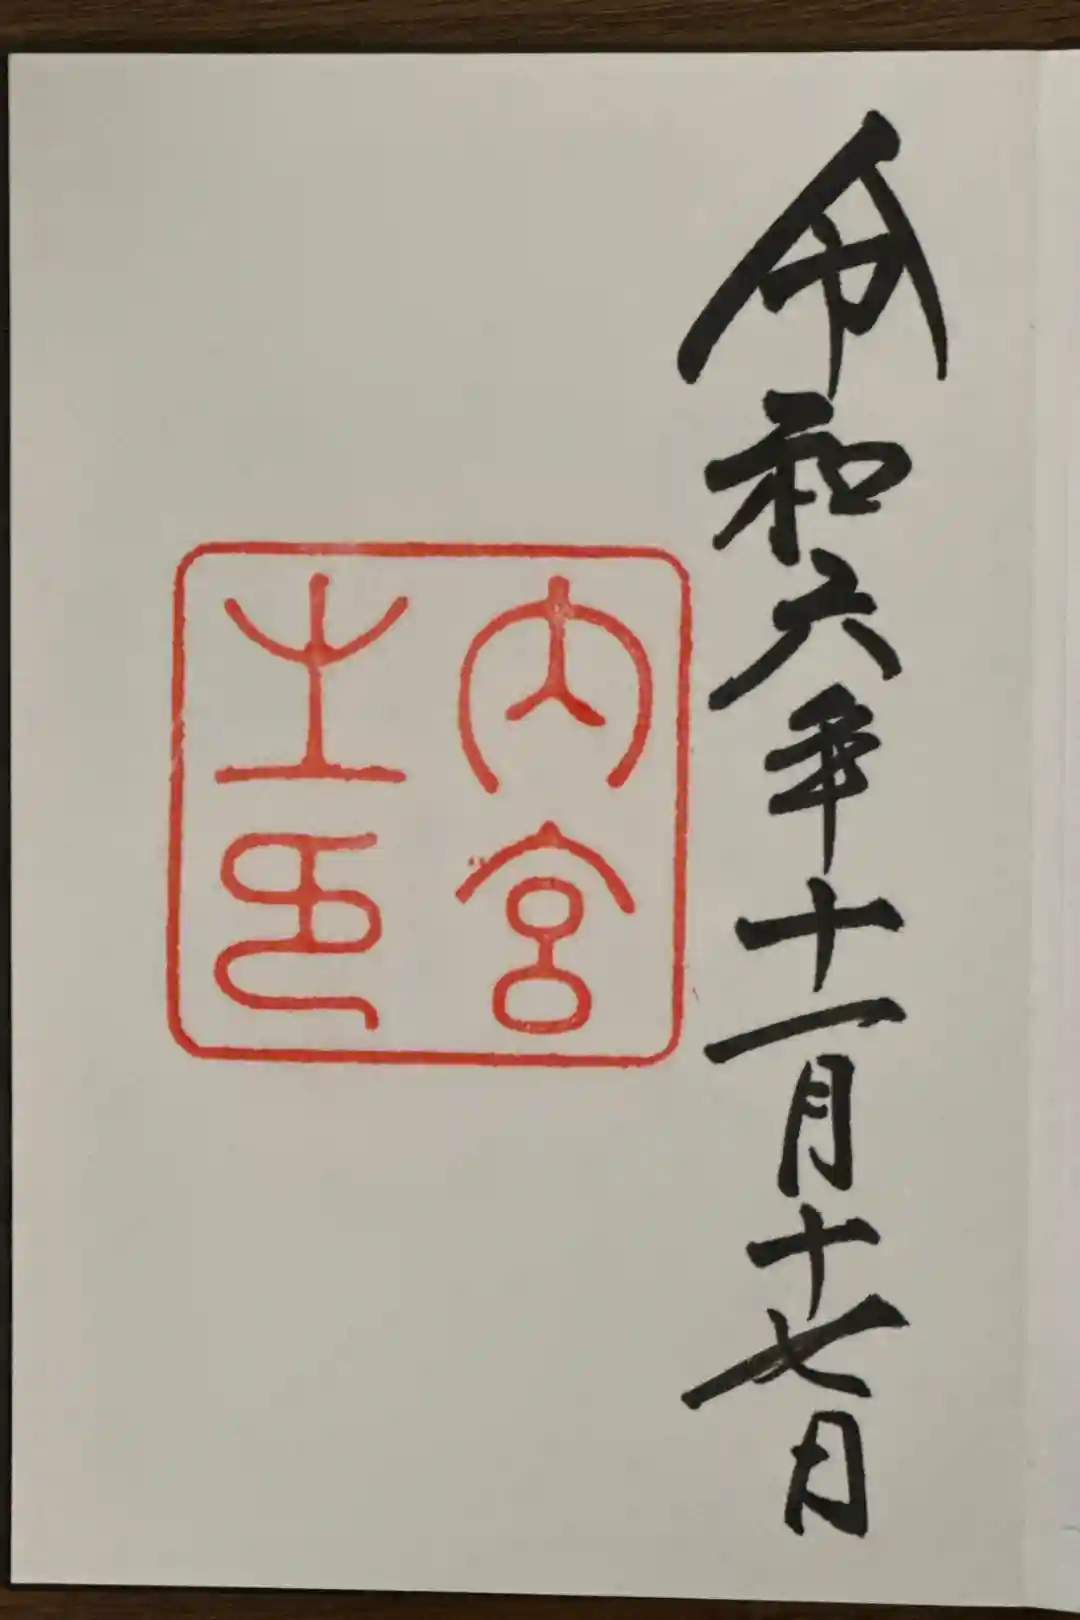 令和六年十一月十七日
内宮
之印